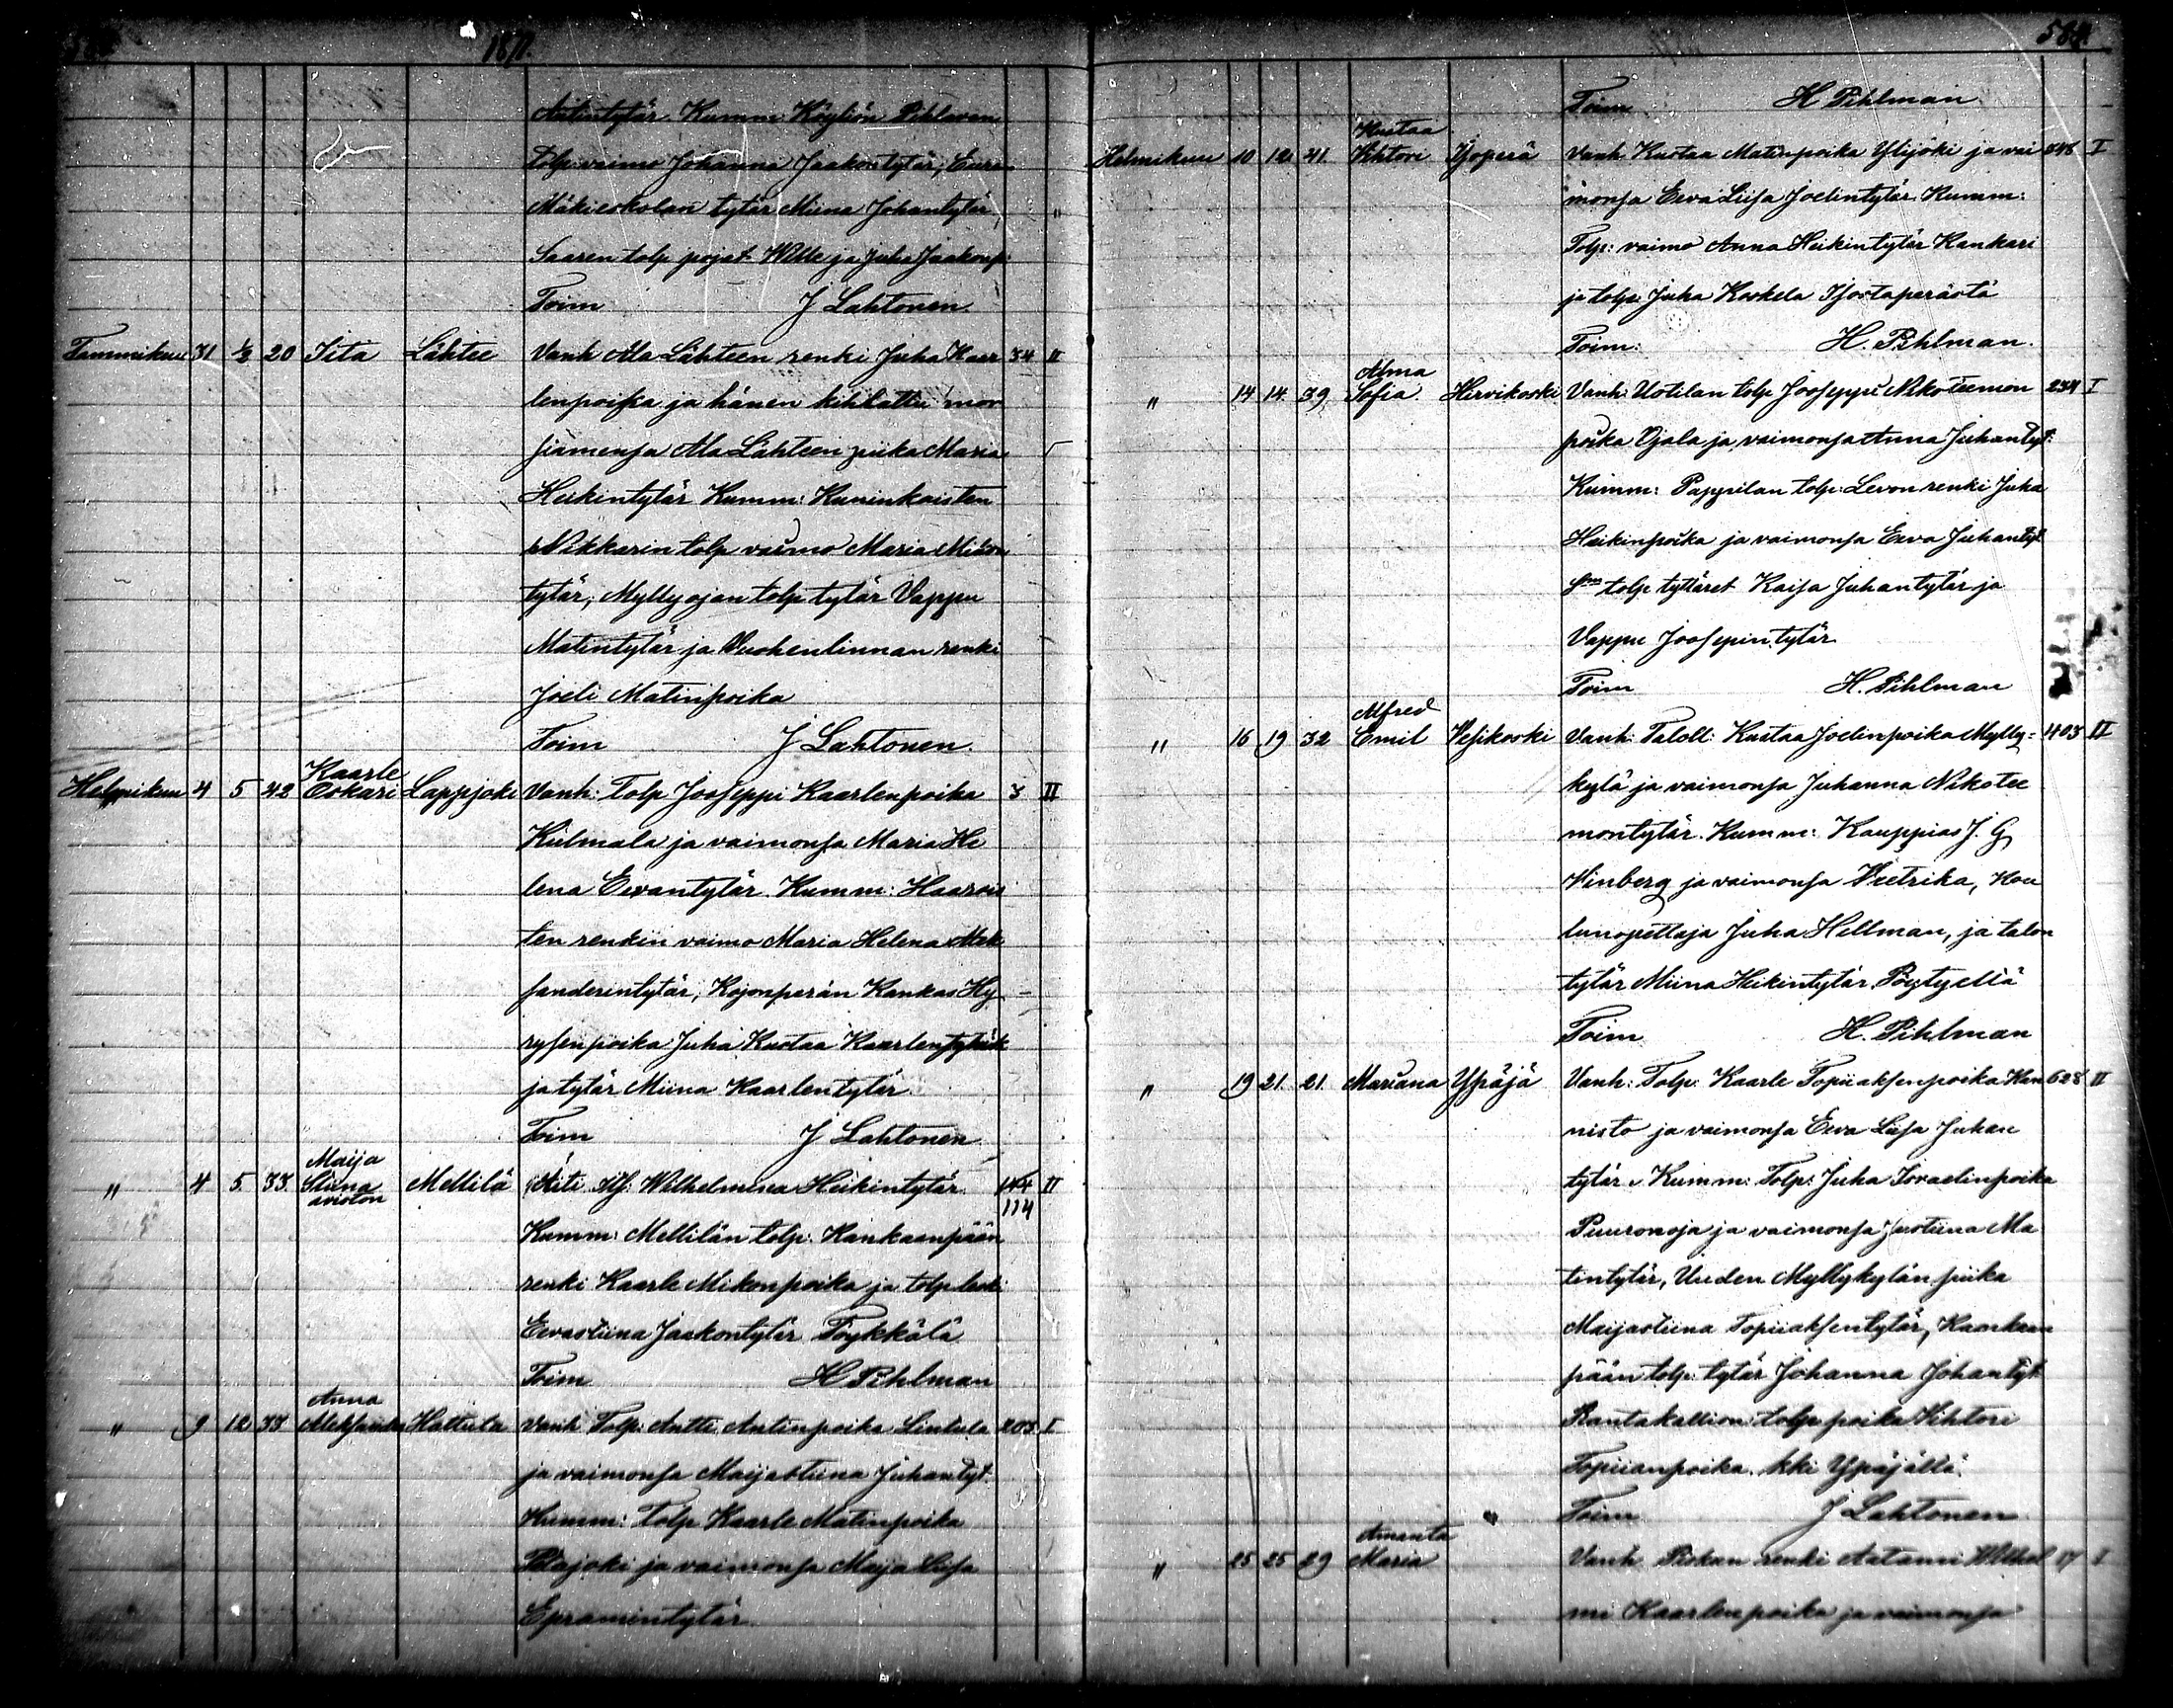 1871.
Antintytär. Kumm: Köyliön Pihlavan
tolp: vaimo Johanna Jaakontytär, Eura
Mäkieskolan tytär Miina Johantytär, "
Saaren tolp pojat Wille ja Juha Jaakonp.
Toim J Lahtonen.
Tammikuu 31 1/2 20 Iita Lähtee Vanh Ala Lähteen renki Juha Kaar 34 II
lenpoika ja hänen kihlattu mor
siamensa Ala Lähteen piika Maria
Heikintytär Kumm: Kuninkaisten
Nikkarin tolp vaimo Maria Mikon
tytär, Myllyojan tolp tytär Vappu
Matintytär ja Vuohenlinnan renki
Joeli Matinpoika
Toim J Lahtonen.
Kaarle
Helmikuu 4 5 42 Oskari Lappjoki Vanh: Tolp Jooseppi Kaarlenpoika 3 II
Kulmala ja vaimonsa Maria He
lena Eevantytär. Kumm: Haarois
ten renkin vaimo Maria Helena Alek
sanderintytär, Kojonperän Kankas Hy
rysenpoika Juha Kustaa Kaarlen
ja tytär Miina Kaarlentytär
Toim J Lahtonen
Maija
" 4 5 33 Stiina Mellilä Äiti Itf. Wilhelmina Heikintytär 144 II
avioton 114
Kumm: Mellilän tolp: Hankaanpään
renki Kaarle Mikonpoika ja tolp leski
Eevastiina Jaakontytär Töykkälä
Toim H Pihlman
Anna
" 9 12 33 Aleksandra Haltula Vanh Tolp: Antti Antinpoika Lintula 203 I
ja vaimonsa Maijastiina Juhantyt.
Kumm: Tolp Kaarle Matinpoika
Pajoki ja vaimonsa Maija Liisa
Epramintytär
584
Toim H Pihlman
Kustaa
Helmikuu 10 12 41 Vihtori Yöperä Vanh Kustaa Matinpoika Ylijoki ja vai 248 I
monsa Eeva Liisa Joelintytär. Kumm:
Tolp: vaimo Anna Heikintytär Kankari
ja tolp: Juha Koskela Isostaperästä
Toim: H. Pihlman.
Alma
" 14 14 39 Sofia Hirvikoski Vanh: Uotilan tolp Jooseppi Nikoteemon 234 I
poika Ojala ja vaimonsa Anna Juhantyt:
Kumm: Pappilan tolp: Levon renki Juha
Heikinpoika ja vaimonsa Eeva Juhantyt
Sm tolp tyttäret Kaisa Juhantytär ja
Vappu Joosepintytär
Toim H. Pihlman
Alfred
" 16 19 32 Emil Vesikoski Vanh: Taloll: Kustaa Joelinpoika Mylly= 403 II
kylä ja vaimonsa Juhanna Nikotee
montytär. Kumm: Kauppias J. G
Vinberg ja vaimonsa Vietrika, Kou
lunopettaja Juha Hellman, ja talon
tytär Miina Heikintytär Pöytyellä
Toim H. Pihlman
" 19 21 21 Mariana Ypäjä Vanh: Tolp: Kaarle Topiaksenpoika Kan 628 II
nisto ja vaimonsa Eeva Liisa Juhan
tytär. Kumm: Tolp: Juha Israelinpoika
Puuronoja ja vaimonsa Justiina Ma
tintytär, Uuden Myllykylän piika
Maijastiina Topiaksentytär, Kankaan
pään tolp: tytär Johanna Johantyt
Rantakallion tolp poika Vihtori
Topiianpoika. kki Ypäjällä.
Toim J Lahtonen
Amanta
" 25 25 29 Maria " Vanh Piskan renki Aatami Wilhel 17 I
mi Kaarlenpoika ja vaimonsa